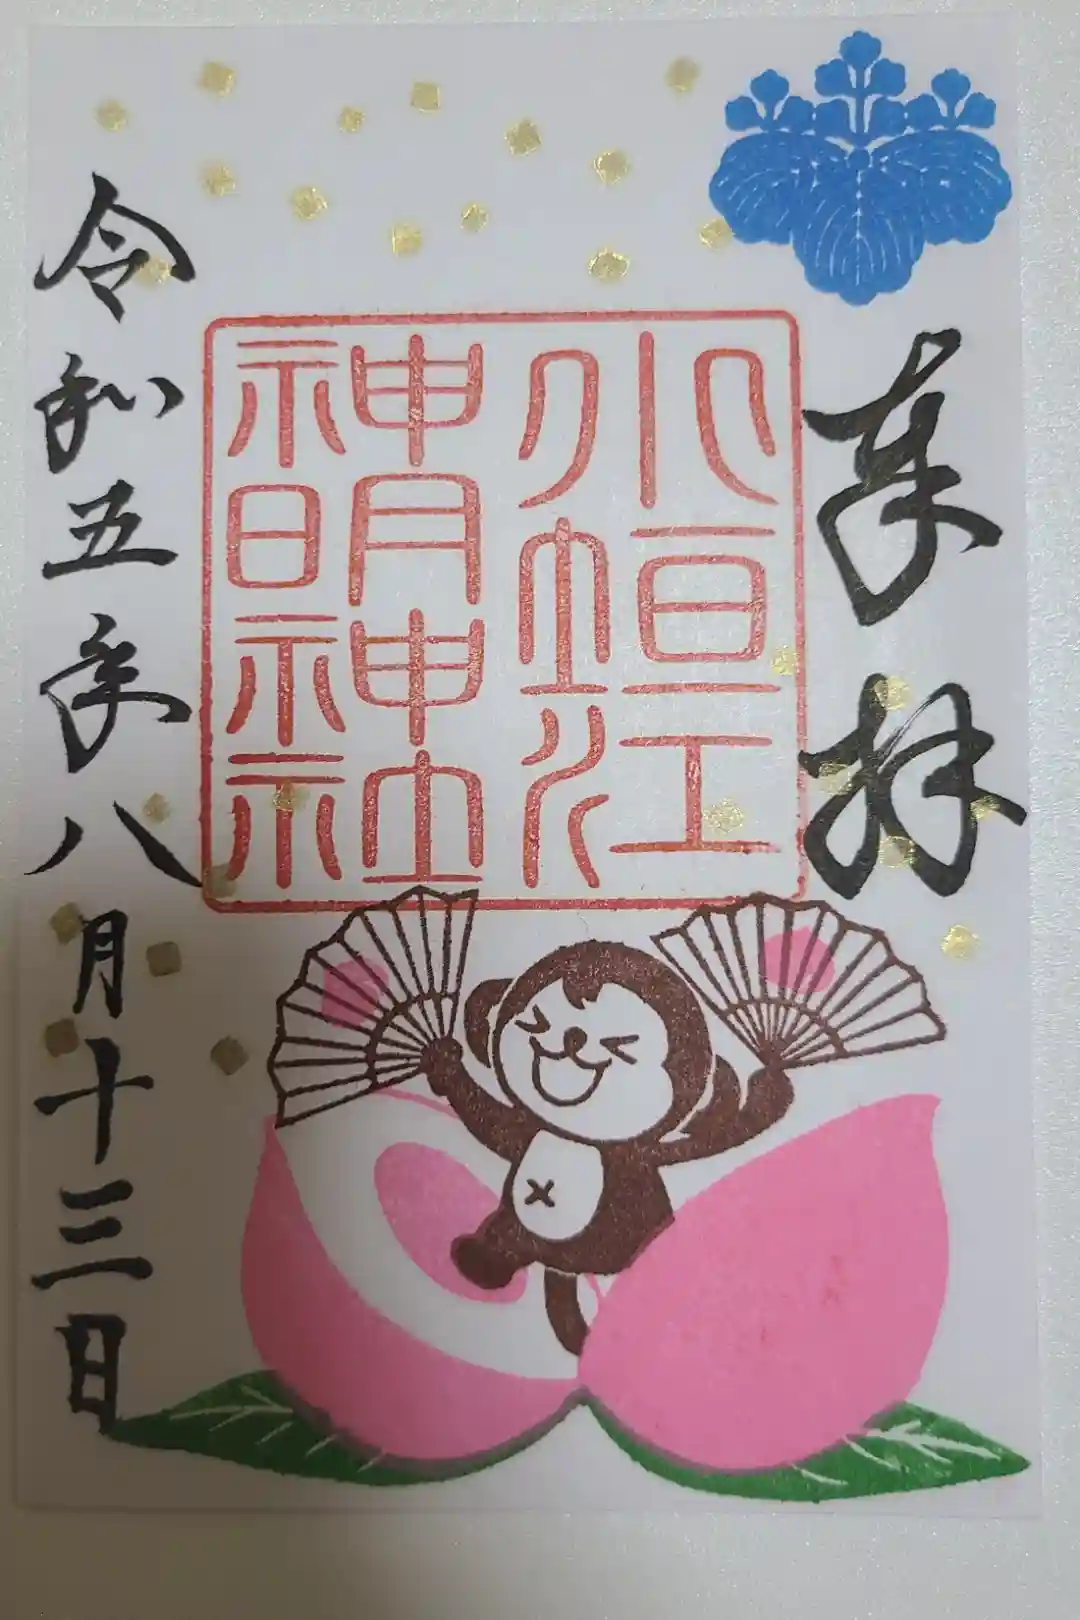 奉拝
小垣江
神明神社
令和五年八月十三日